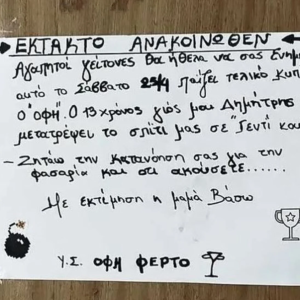 ΕΚΤΑΚΤΟ ΑΝΑΚΟΙΝΩΘΕΝ
Αγαπητοί γείτονες θα ήθελα να σας ενημ
αυτό το ΣΑΒΒΑΤΟ 25/4 Παίζει τελικό Κυπ
Ο "ΟΦΗ". Ο 13χρονος γιός μου Δημήτρης
μετατρέψει το σπίτι μας σε "Γεντί κου
- Ζητάω την κατανόηση σας για την
φασαρία και ότι ακούσετε......
Με εκτέμηση η μαμά Βάσω
Υ.Σ. ΟΦΗ ΦΕΡΤΟ